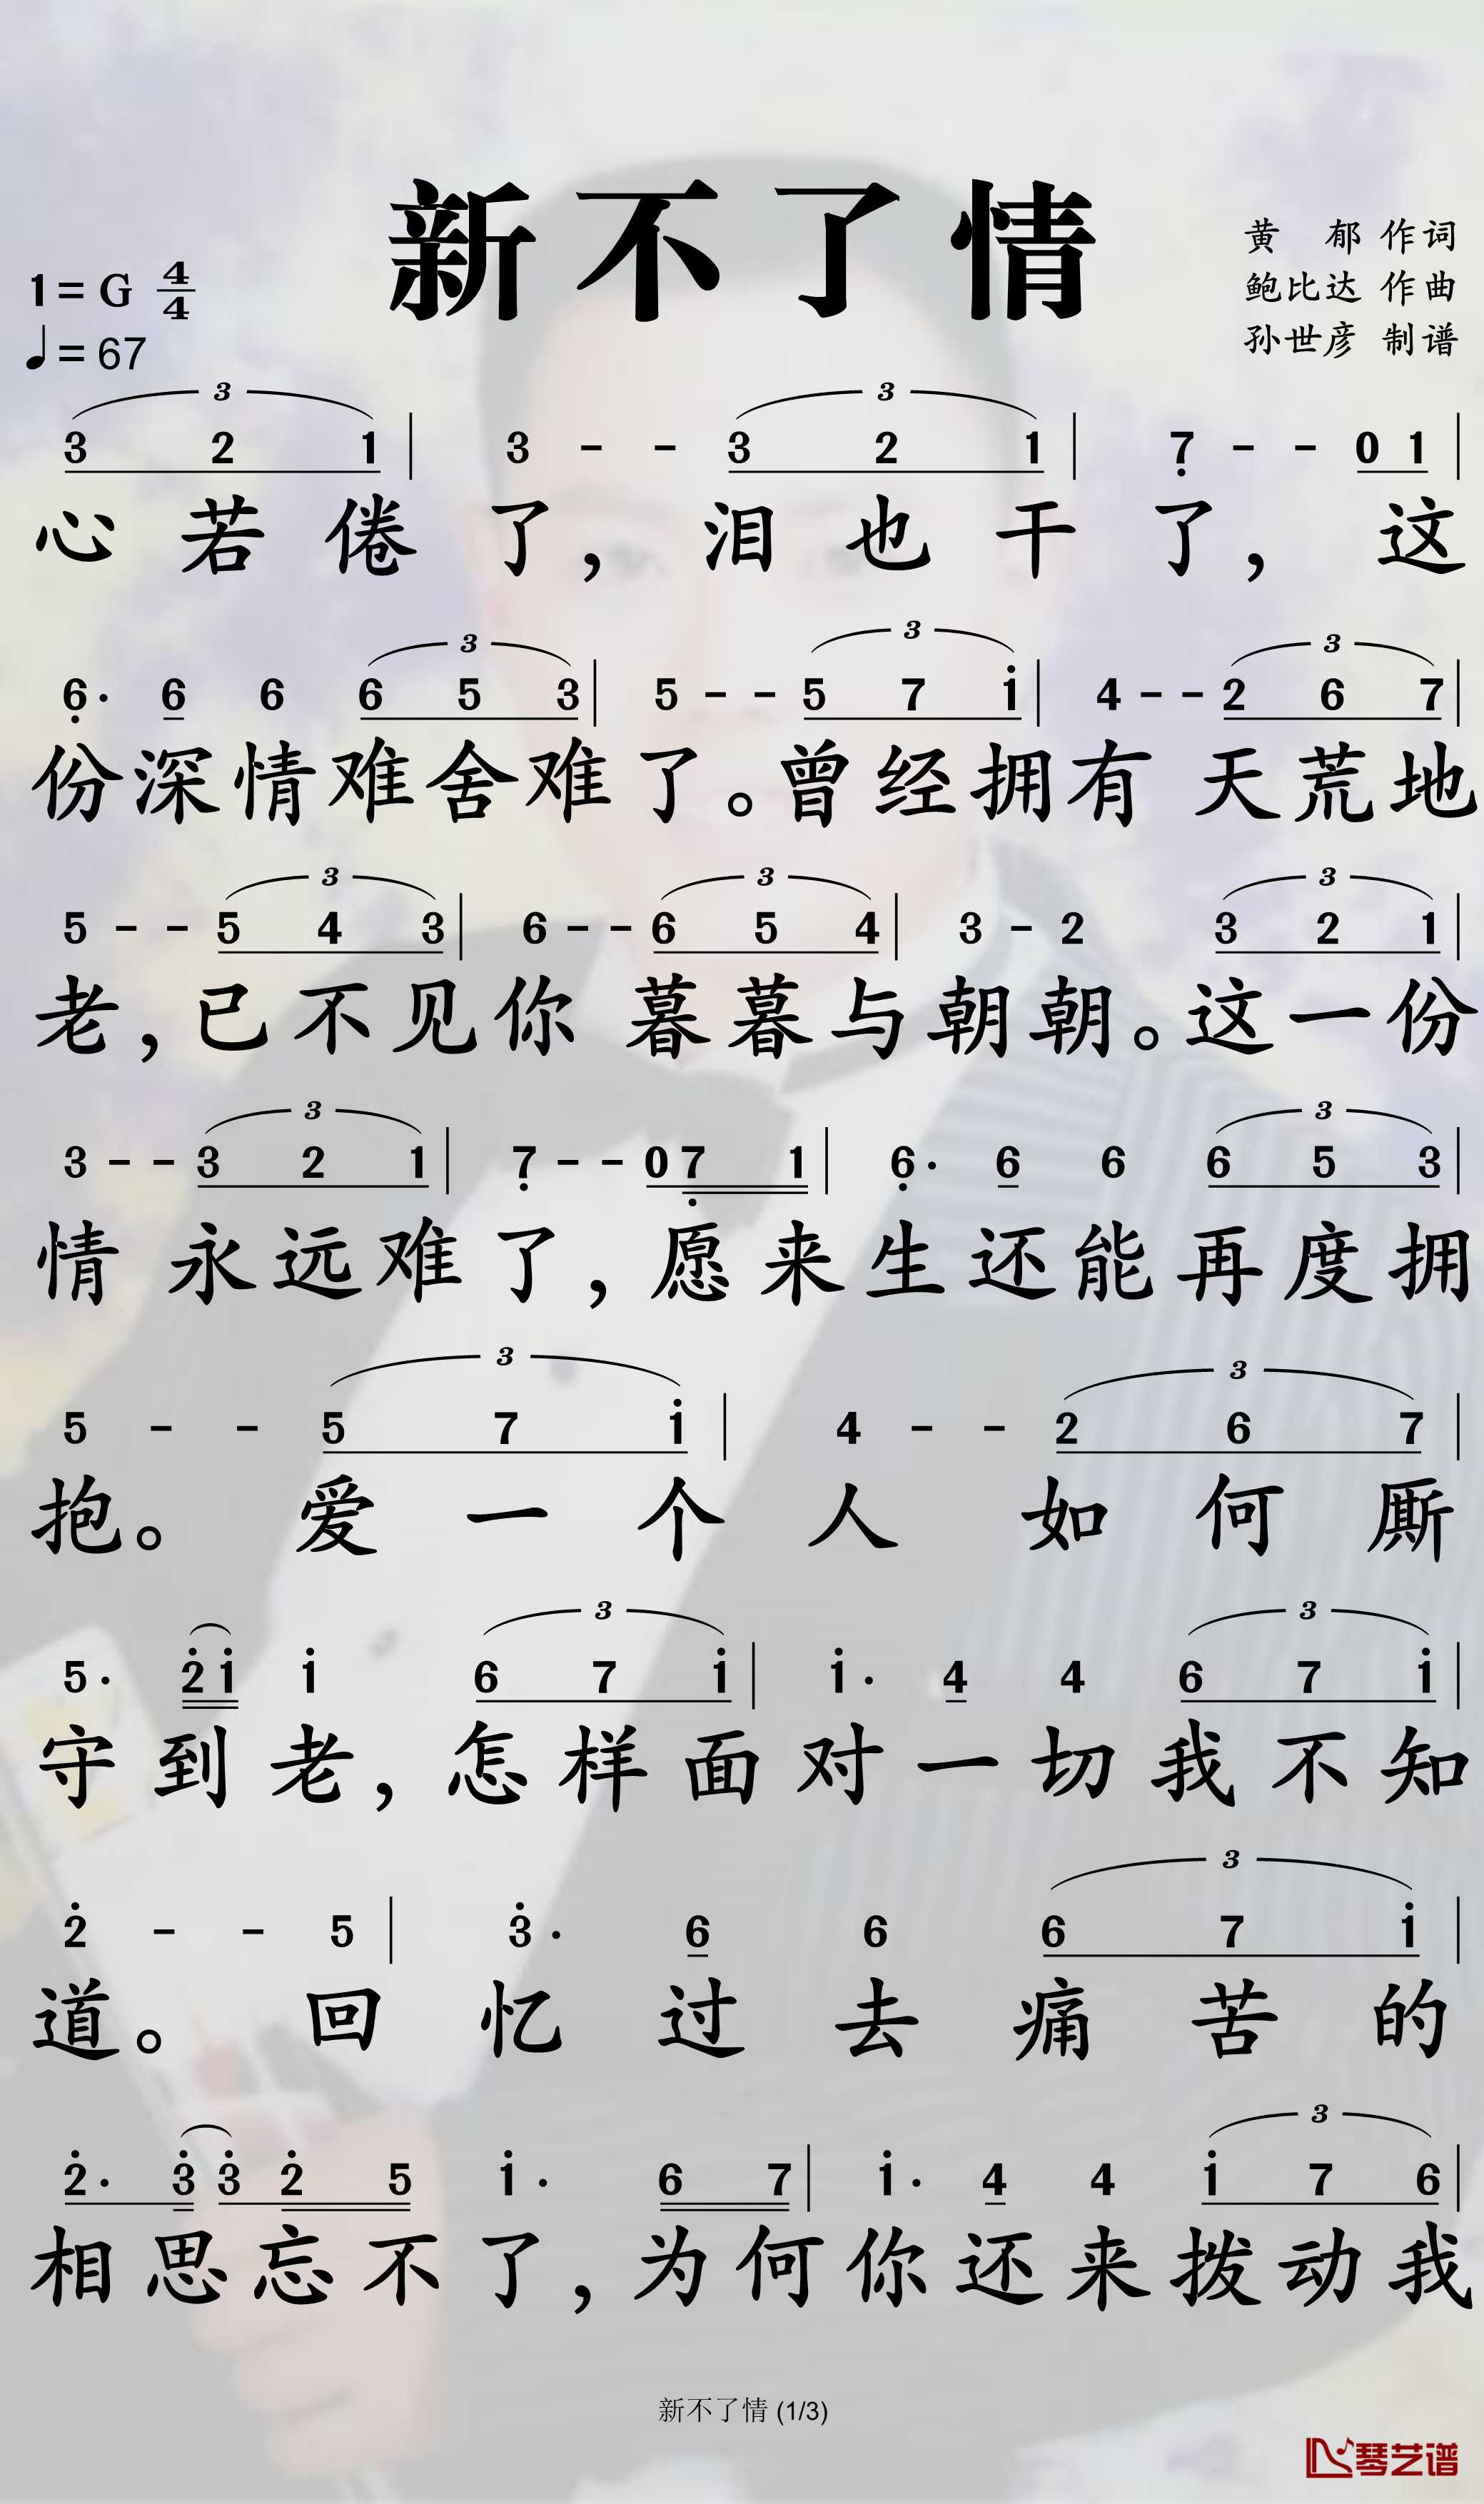 新不了情
黄 郁 作词
鲍比达 作曲
孙世彦 制谱
1= G 4/4
♩= 67
3 3
3 2 1 | 3 - - 3 2 1 | 7̣ - - 0 1 |
心若倦了，泪也干了，这
3 3 3
6̣· 6 6 6 5 3 | 5 - - 5 7 i | 4 - - 2 6 7 |
份深情难舍难了。曾经拥有 天荒地
3 3 3
5 - - 5 4 3 | 6 - - 6 5 4 | 3 - 2 3 2 1 |
老，已不见你 暮暮与朝朝。这一份
3 3
3 - - 3 2 1 | 7̣ - - 0 7̣ 1 | 6̣· 6 6 6 5 3 |
情 永远难了，愿来生还能再度拥
3 3
5 - - 5 7 i | 4 - - 2 6 7 |
抱。 爱一个人 如何厮
3 3
5· 2̇ i i 6 7 i | i· 4 4 6 7 i |
守到老，怎样面对一切我不知
3
2̇ - - 5 | 3̇· 6 6 6 7 i |
道。 回忆过去痛苦的
3
2̇· 3̇ 3̇ 2̇ 5 i· 6 7 | i· 4 4 i 7 6 |
相思忘不了，为何你还来拨动我
新不了情 (1/3)
琴艺谱